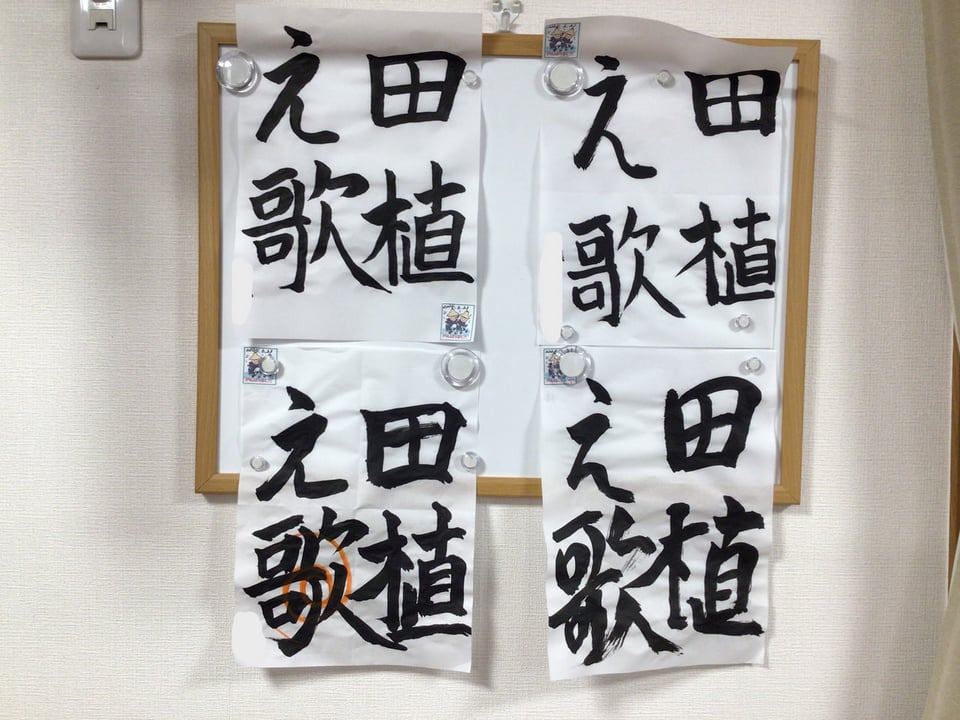 田植
え歌
田植
え歌
田植
え歌
田植
え歌